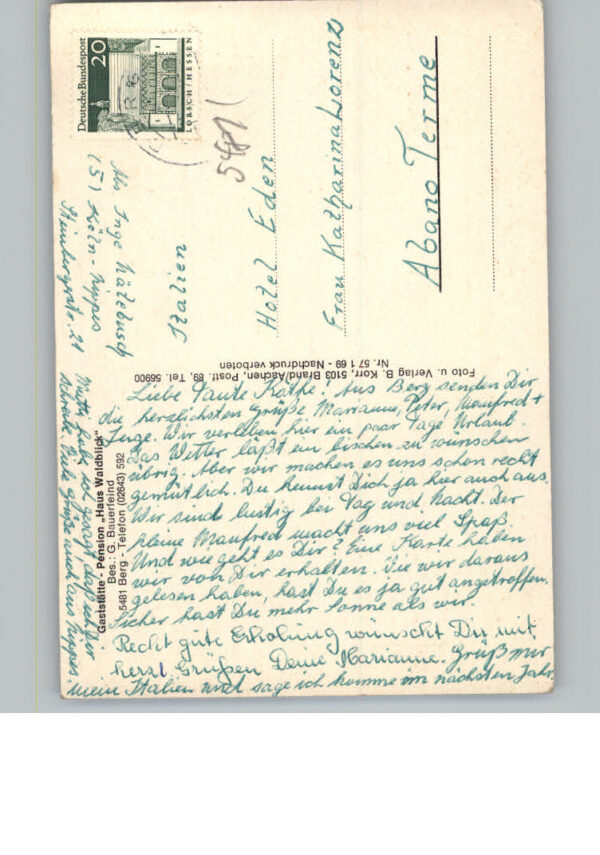 Deutsche Bundespost
20
LORSCH / HESSEN
Abs Inge
(5) Köln-Nippes
Steinbergerstr. 21
Frau Katharina Lorenz
Hotel Eden
Abano Terme
Italien
Gaststätte - Pension „Haus Waldblick"
Bes.: G. Bauerfeind
5481 Berg - Telefon (02643) 592
Foto u. Verlag B. Korr, 5103 Brand/Aachen, Postf. 89, Tel. 56900
Nr. 57 1 69 - Nachdruck verboten
Liebe Tante Käthe! Aus Berg senden Dir
die herzlichsten Grüße Marianne, Peter, Manfred +
Inge. Wir verleben hier ein paar Tage Urlaub.
Das Wetter läßt ein bischen zu wünschen
übrig. Aber wir machen es uns schon recht
gemütlich. Du kennst Dich ja hier auch aus.
Wir sind lustig bei Tag und Nacht. Der
kleine Manfred macht uns viel Spaß.
Und wie geht es Dir? Eine Karte haben
wir von Dir erhalten. Wie wir daraus
gelesen haben, hast Du es ja gut angetroffen.
Sicher hast Du mehr Sonne als wir.
Recht gute Erholung wünscht Dir mit
herzl. Grüßen Deine Marianne. Grüß mir
mein Italien und sage ich komme im nächsten Jahr.
Mutti hat gesagt daß ich Dir
schreib. Viele Grüße auch aus Nippes